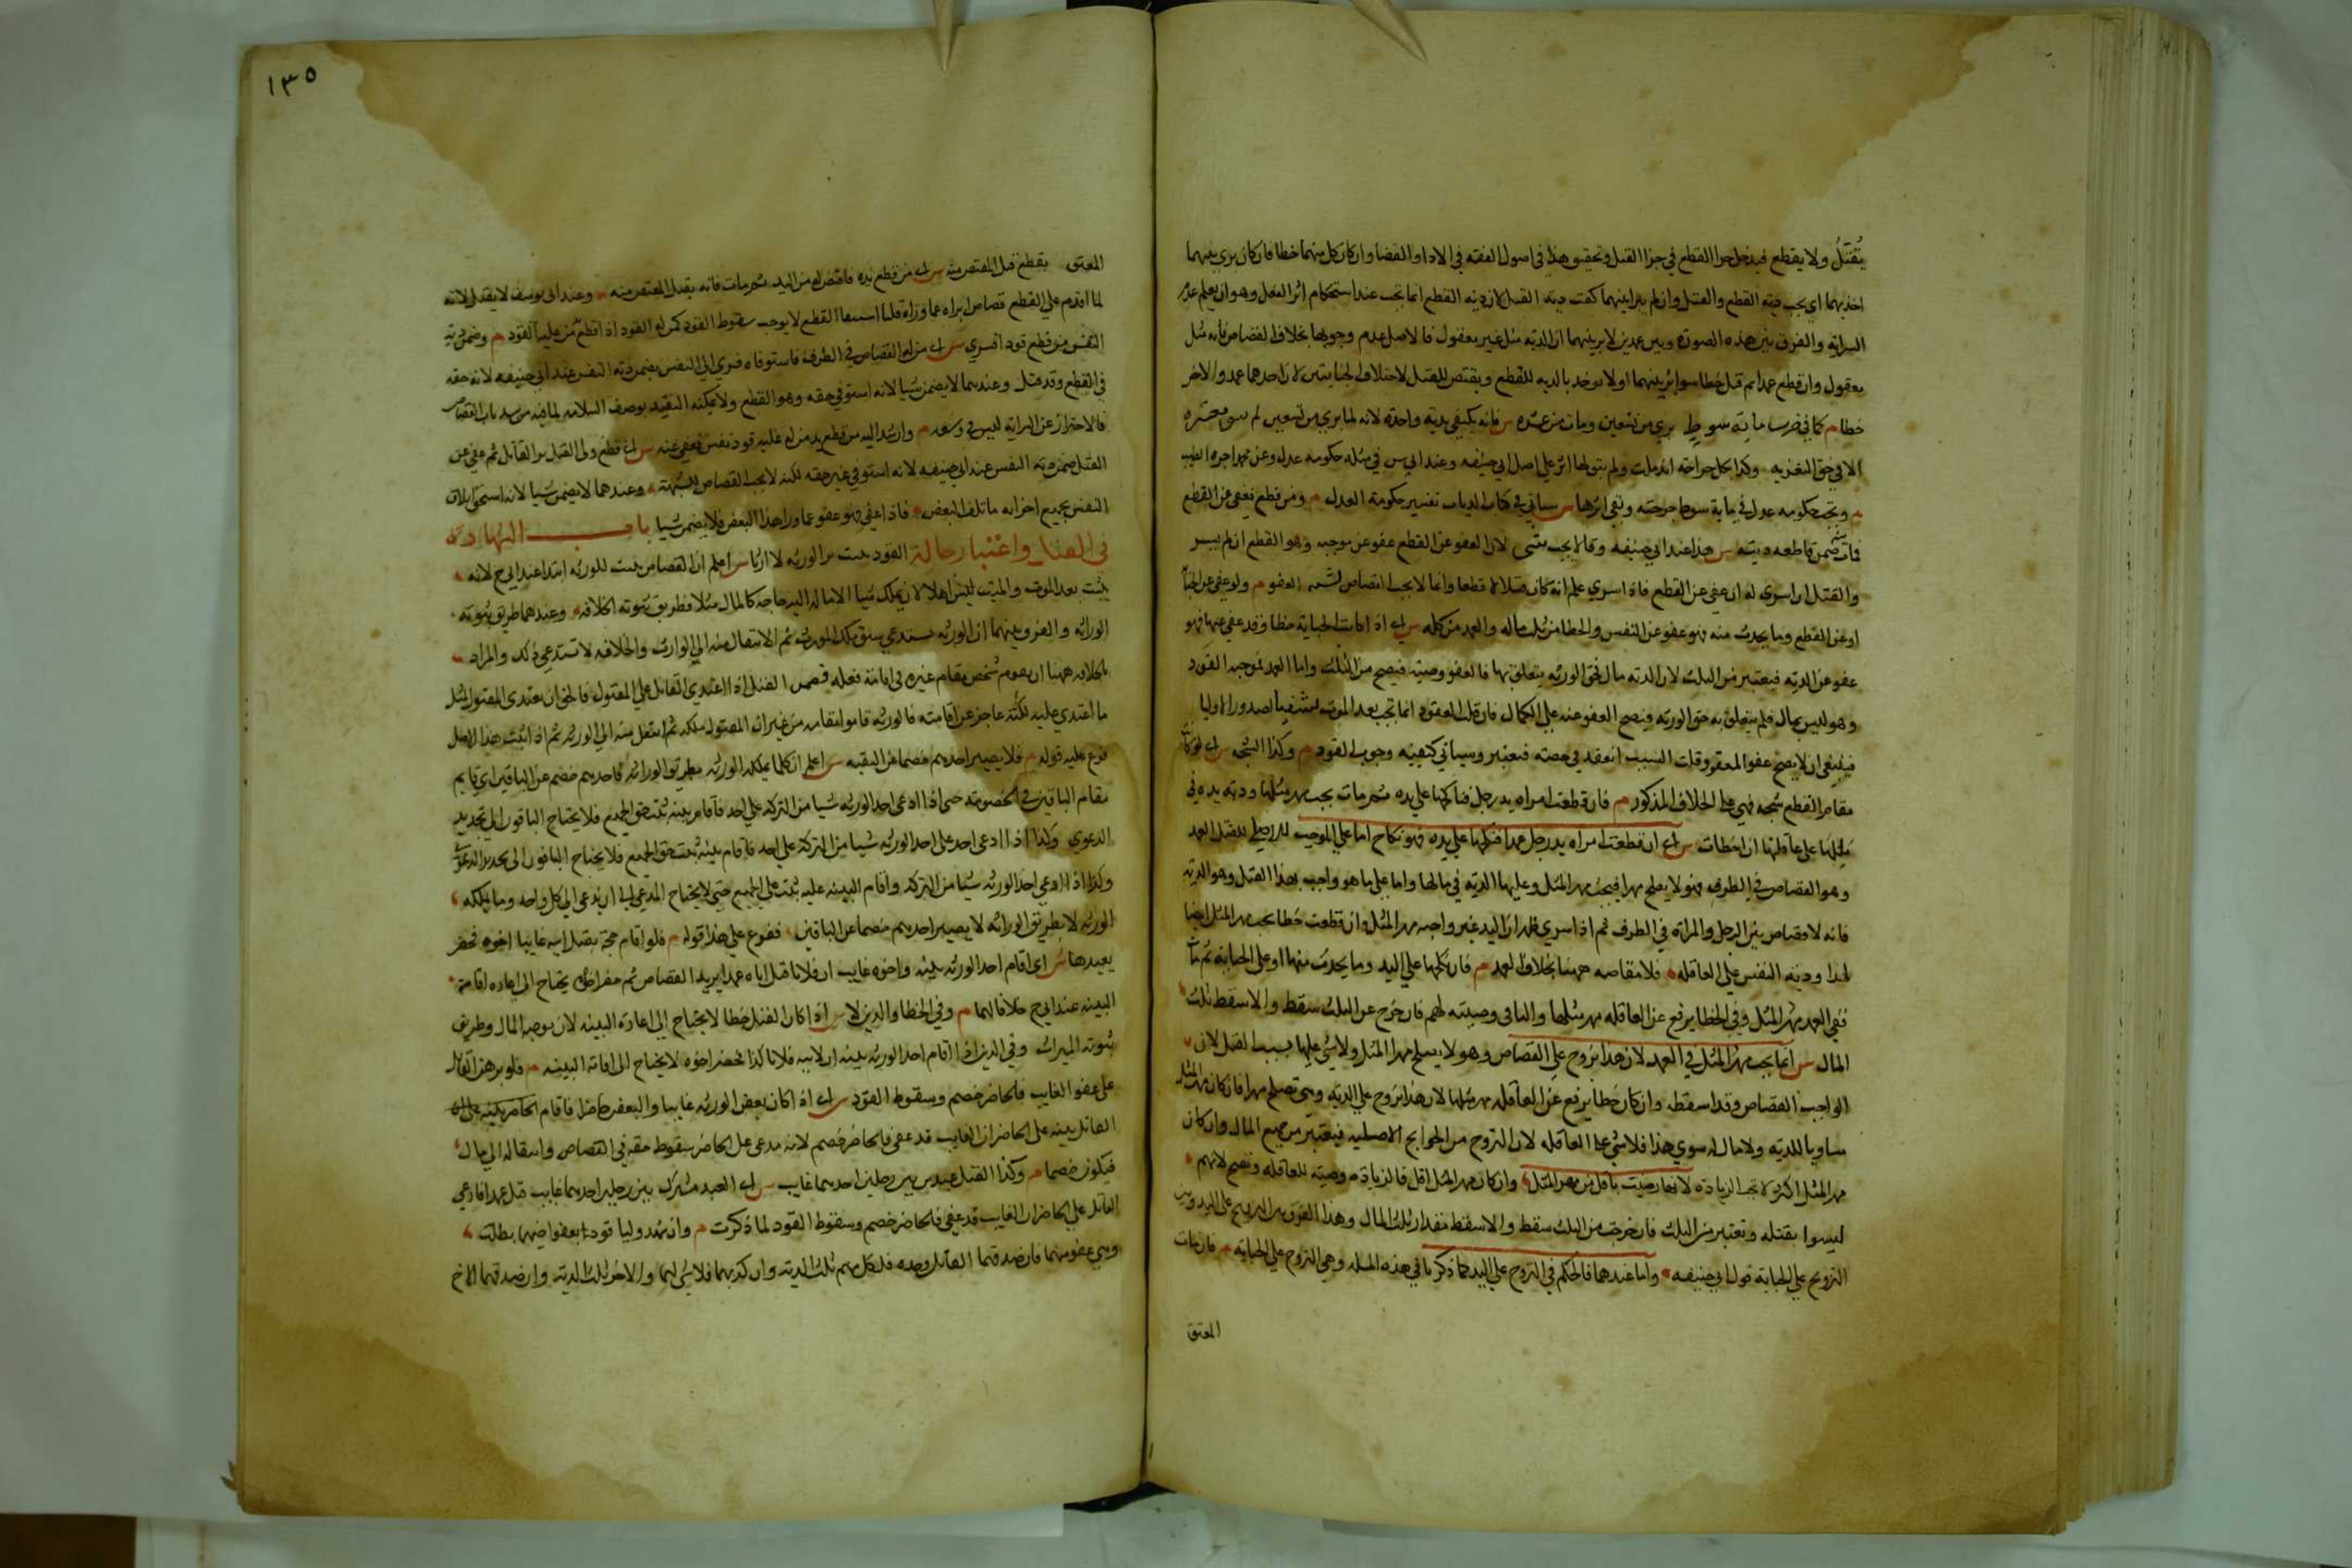 يُقتَلُ ولا يقطع فيدخل جزا القطع في جزا القتل وتحقيق هذا في اصول الفقه في الادا والقضا وان كان كل منهما خطا فان كان برئ بينهما
اخذ بهما اي يجب دية القطع والقتل وان لم يبرا بينهما كفت دية القتل لان دية القطع انما تجب عند استحكام اثر الفعل وهو ان يعلم عدم
السراية والفرق بين هذه الصورة وبين عمدين لا برء بينهما ان الدية مثل غير معقول فالاصل عدم وجوبها بخلاف القصاص فانه مثل
معقول وان قطع عمدا ثم قتل خطا سوا برئ بينهما او لا يوخذ بالدية للقطع ويقتص للقتل لاختلاف الجنايتين لان احدهما عمد والاخر
خطا م كما في ضرب ماية سوط بري من تسعين ومات من عشرة س فانه يكتفي بدية واحدة لانه لما بري من تسعين لم يبق معتبرة
الا في حق التعزير وكذا كل جراحة اندملت ولم يبق لها اثر علي اصل ابي حنيفه وعند ابي يوسف في مثله حكومة عدل وعن محمد اجرة الطبيب
م وتجب حكومة عدل في ماية سوط جرحته وبقي اثرها س سياتي في كتاب الديات تفسير حكومة العدل م ومن قطع فعفى عن القطع
فمات منه ضمن قاطعه ديته س هذا عند ابي حنيفه وقالا لا يجب شي لان العفو عن القطع عفو عن موجبه وهو القطع ان لم يسر
والقتل ان اسرى له انه عفى عن القطع فاذا سري علم انه كان قتلا لا قطعا وانما لا يجب القصاص لشبهة العفو م ولو عفى عن الجناية
او عن القطع وما يحدث منه فهو عفو عن النفس والخطا من ثلث ماله والعمد من كله س اي اذا كانت الجناية خطا وقد عفى عنها فهو
عفو عن الدية فيعتبر من الثلث لان الدية مال فحق الورثه يتعلق بها فالعفو وصية فيصح من الثلث واما العمد فموجبه القود
وهو ليس بمال فلم يتعلق به حق الورثه فيصح العفو عنه علي الكمال فان قلت القود انما تجب بعد الموت لتشفي لصدور الاوليا
فينبغي ان لا يصح عفو المقتول قلت السبب انعقد في حقه فيعتبر وسياتي كيفية وجوب القود م وكذا الشجه س اي لو كان
مقام القطع شجه فهي علي الخلاف المذكور م فان قطعت امراه يد رجل فنكحها علي يده ثم مات يجب مهر مثلها ودية يده في
مالها وعلى عاقلتها ان اخطات س اي ان قطعت امراه يد رجل عمدا فنكحها علي يده فهو نكاح اما علي الموجب الاصلي للقتل العمد
وهو القصاص في الطرف فهو لا يصلح مهرا فيجب مهر المثل وعليها الدية في مالها واما علي ما هو واجب بهذا القتل وهو الدية
فانه لا قصاص بين الرجل والمراة في الطرف ثم اذا سري ظهر ان اليد غير واجبه مهر المثل وان قطعت خطا يجب مهر المثل ايضا
لهذا ودية النفس علي العاقله فلا مقاصه ههنا بخلاف العمد م فان نكحها علي اليد وما يحدث منها او علي الجناية ثم مات
ففي العمد مهر المثل وفي الخطا يرفع عن العاقله مهر مثلها والباقي وصية لهم فان خرج عن الثلث سقط والا سقط ثلث
المال س انما يجب مهر المثل في العمد لان هذا تزوج علي القصاص وهو لا يصلح مهرا المثل ولا شي عليها بسبب القتل لان
الواجب القصاص وقد اسقطه وان كان خطا يرفع عن العاقله مهر مثلها لان هذا تزوج علي الدية وهي تصلح مهرا فان كان مهر المثل
مساويا للدية ولا مال له سوي هذا فلا شي علي العاقله لان التزوج من الحوايج الاصليه فيعتبر من جميع المال وان كان
مهر المثل اكثر لا تجب الزيادة لانها رضيت باقل من مهر المثل وان كان مهر المثل اقل فالزيادة وصية للعاقله وتصح لانهم
ليسوا بقتله وتعتبر من الثلث فان خرجت من الثلث سقط والا سقط مقدار ثلث المال وهذا الفرق بين التزويج على اليد وبين
التزويج علي الجناية قول ابي حنيفه واما عندهما فالحكم في التزوج علي اليد كما ذكرنا في هذه المسله وهي التزوج علي الجناية م فان مات
المعتق
١٣٥
المعتق بقطع قتل المقتص منه س اي من قطع يده فاقتص له من اليد ثم مات فانه يقتل المقتص منه وعند ابي يوسف لا يقتل لانه
لما اقدم علي القطع قصاصا ابراه عما وراه قلنا استيفا القطع لا يوجب سقوط القود كمن له القود اذا قطع من عليه القود م وضمن دية
النفس من قطع قودا فسري س اي من له القصاص في الطرف فاستوفاه فسري الي النفس يضمن دية النفس عند ابي حنيفه لانه حقه
في القطع وقد قتل وعندهما لا يضمن شيا لانه استوفي حقه وهو القطع ولا يمكنه التقييد بوصف السلامه لما فيه من سد باب القصاص
فالاحتراز عن السراية ليس في وسعه م وارش اليد من قطع يد من له عليه قود نفس فعفى عنه س اي قطع ولي القتيل يد القاتل ثم عفى عن
القتل ضمن دية النفس عند ابي حنيفه لانه استوفي غير حقه لكن لا يجب القصاص للشبهة وعندهما لا يضمن شيا لانه استحق اتلاف
النفس بجميع اجزائه ما تلف البعض فاذا عفي فهو عفو عما ورا هذا البعض فلا يضمن شيا باب الشهادة
في القتل واعتبار حالته القود يثبت بدا للورثه لا ارثا س اعلم ان القصاص يثبت للورثه ابتدا عند ابي ح لانه
يثبت بعد الموت والميت ليس اهلا لان يملك شيا الا ماله اليه حاجه كالمال مثلا فطريق ثبوته الخلافه وعندهما طريق ثبوته
الوراثه والفرق بينهما ان الوراثه تستدعي سبق ملك المورث ثم الانتقال منه الي الوارث والخلافه لا تستدعي ذلك والمراد
بالخلافه ههنا ان يقوم شخص مقام غيره في اقامة فعله ففي القتل اذا اعتدى القاتل علي المقتول فالحق ان يعتدى المقتول بمثل
ما اعتدي عليه لكنه عاجز عن اقامته فالورثه قاموا مقامه من غير ان المقتول ملكه ثم انتقل منه الي الورثه ثم اذا ثبت هذا الاصل
فرع عليه قوله م فلا يصير احدهم خصما عن البقيه س اعلم ان كلما يملكه الورثه بطريق الوراثه فاحدهم خصم عن الباقين اي قايم
مقام الباقين في الخصومه حتى اذا ادعى احد الورثه شيا من التركه علي احد فاقام بينه ثبت حق الجميع فلا يحتاج الباقون الي تجديد
الدعوي وكذا اذا ادعى احد على احد الورثه شيا من التركة علي احد فاقام بينة ثبت حق الجميع فلا يحتاج الباقون الى تجديد الدعوى
وكذا اذا ادعى احد الورثه شيا من التركه واقام البينه عليه ثبت علي الجميع حتى لا يحتاج المدعي الي ان يدعى الي كل واحد وما يملكه
الورثه لا بطريق الوراثه لا يصير احدهم خصما عن الباقين ففرع علي هذا قوله م فلو اقام حجة بقتل ابيه غايبا اخوه فحضر
يعيدها س اي اقام احد الورثه بينه واخوه غايب ان فلانا قتل اباه عمدا يريد القصاص ثم حضر اخوه يحتاج الى اعاده اقامة
البينه عند ابي ح خلافا لهما م وفي الخطا والدين لا س اي اذا كان القتل خطا لا يحتاج الى اعادة البينه لان موجبه المال وطريق
ثبوته الميراث وفي الدين اذا اقام احد الورثه بينه ان لابيه فلانا كذا فحضر اخوه لا يحتاج الى اقامة البينه م فلو برهن القاتل
على عفو الغايب فالحاضر خصم وسقوط القود س اي اذا كان بعض الورثه غايبا والبعض حاضرا فاقام الحاضر بينه على ان
القاتل بينه على الحاضر ان الغايب قد عفى فالحاضر خصم لانه مدعى على الحاضر سقوط حقه في القصاص وانتقاله الي مال
فيكون خصما م وكذا القتل عبد بين رجلين احدهما غايب س اي العبد مشترك بين رجلين احدهما غايب قتل عمدا فادعى
القاتل علي الحاضر ان الغايب قد عفي فالحاضر خصم وسقوط القود لما ذكرت م وان شهد وليا قود بعفو اخيهما بطلت
وهي عفو منهما فان صدقهما القاتل وحده فلكل منهم ثلث الدية وان كذبهما فلا شي لهما والاخر ثلث الدية وان صدقهما الاخ